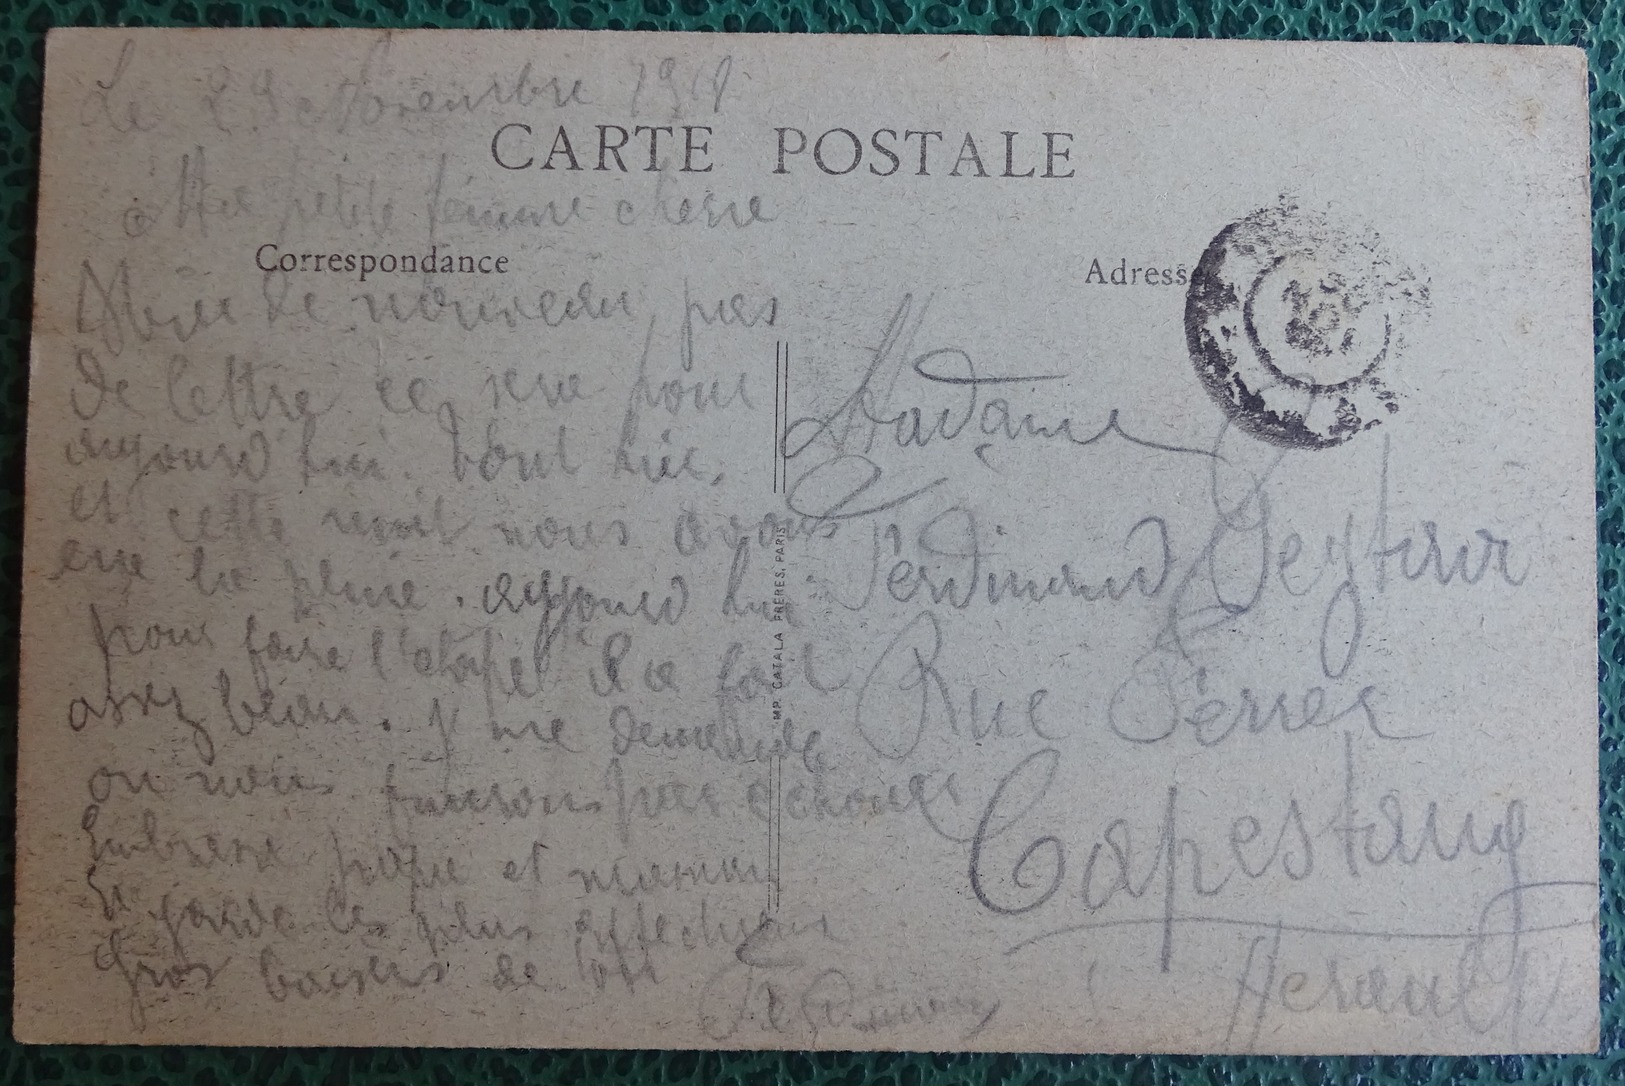 Le 29 Novembre 1918
CARTE POSTALE
Ma petite femme cherie
Correspondance
Adresse
Rien de nouveau pas
de lettre ce sera pour
aujourd hui. tout hier.
et cette nuit nous avons
eue la pluie. aujourd hui
pour faire l'etape il a fait
assez beau. J me demande
ou nous
Embrasse papa et maman
garde les plus affectueux
Gros baisers de ton
Ferdinand
IMP. CATALA FRERES, PARIS
Madame
Ferdinand
Rue
Capestang
Herault